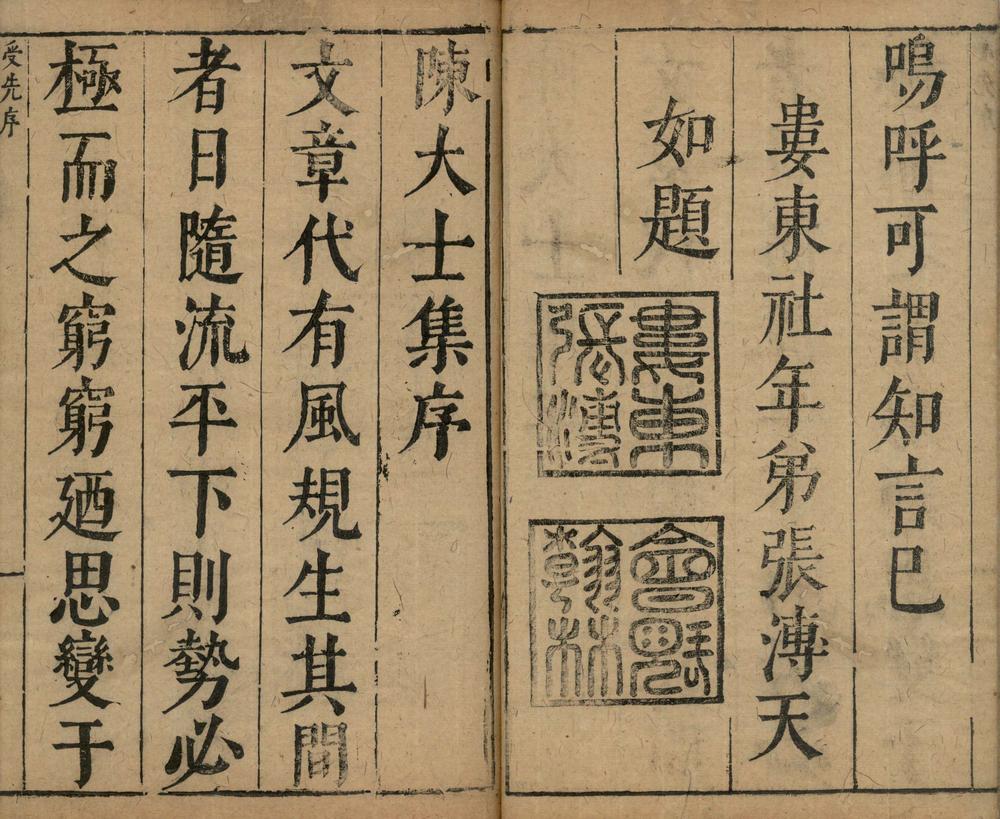 嗚呼可謂知言已
婁東社年弟張溥天
如題
婁東
張溥
會魁
翰林
陳大士集序
文章代有風規生其間
者日隨流平下則勢必
極而之窮窮廼思變于
受先序